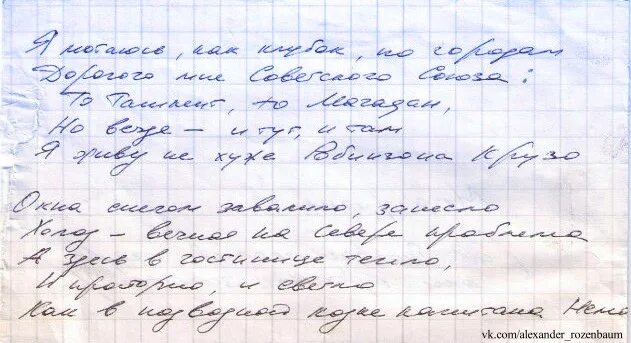 Я мотаюсь, как клубок, по городам
Дорогого мне Советского Союза:
То Ташкент, то Магадан,
Но везде – и тут, и там
Я живу не хуже Робинзона Крузо
Окна снегом завалило, занесло
Холод – вечная на Севере проблема
А здесь в гостинице тепло,
И просторно, и светло
Как в подводной лодке капитана Немо
vk.com/alexander_rozenbaum